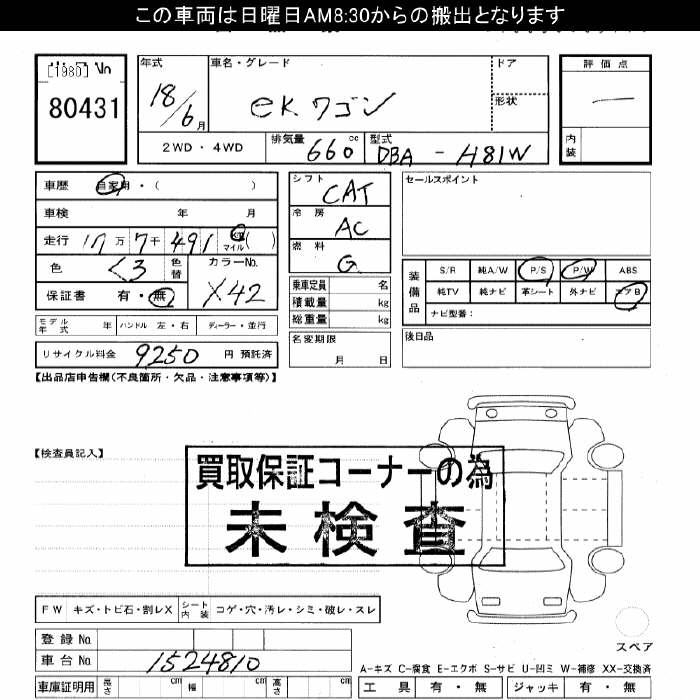 この車両は日曜日AM8:30からの搬出となります
[1980] No
80431
年式 18/6月
車名・グレード ekワゴン
ドア
形状
2WD・4WD
排気量 660cc
型式 DBA - H81W
評価点
内装
車歴 自家用・( )
車検 年 月
走行 17万7千491 km マイル( )
色 くろ 色替 カラーNo. X42
保証書 有・無
モデル年式 年 ハンドル 左・右 ディーラー・並行
リサイクル料金 9250 円 預託済
シフト CAT
冷房 AC
燃料 G
乗車定員 名
積載量 kg
総重量 kg
名変期限 月 日
セールスポイント
装備品 S/R 純A/W P/S P/W ABS
純TV 純ナビ 革シート 外ナビ エアB
ナビ型番:
後日品
【出品店申告欄(不良箇所・欠品・注意事項等)】
【検査員記入】
買取保証コーナーの為
未検査
FW キズ・トビ石・割レX シート内装 コゲ・穴・汚レ・シミ・破レ・スレ
登録No.
車台No. 1524810
車庫証明用 長さ cm 幅 cm 高さ cm
スペア
A-キズ C-腐食 E-エクボ S-サビ U-凹ミ W-補修 XX-交換済
工具 有・無 ジャッキ 有・無